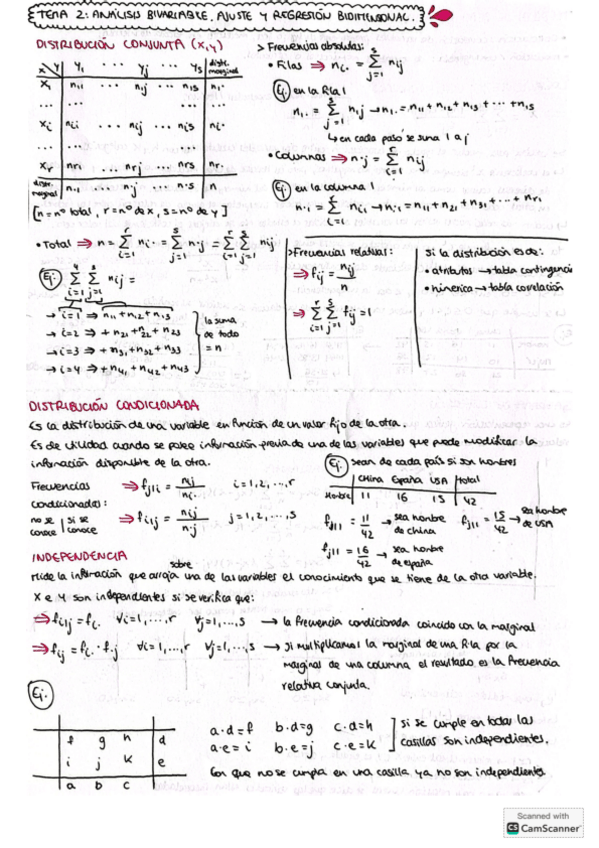 TEMA 2: ANÁLISIS BIVARIABLE. AJUSTE Y REGRESIÓN BIDIMENSIONAL.
DISTRIBUCIÓN CONJUNTA (x,y)
x\y y1 ... yj ... ys distr. marginal
x1 n11 ... n1j ... n1s n1·
... ... ... ...
xi ni1 ... nij ... nis ni·
... ... ... ...
xr nr1 ... nrj ... nrs nr·
distr. marginal n·1 ... n·j ... n·s
[n = nº total, r = nº de x, s = nº de y]
> Frecuencias absolutas:
• Filas ⇒ ni· = Σ(j=1, s) nij
Ej. en la fila 1
n1· = Σ(j=1, s) n1j → n1· = n11 + n12 + n13 + ··· + n1s
↳ en cada paso se suma 1 a j
• Columnas ⇒ n·j = Σ(i=1, r) nij
Ej. en la columna 1
n·1 = Σ(i=1, r) ni1 → n·1 = n11 + n21 + n31 + ··· + nr1
• Total ⇒ n = Σ(i=1, r) ni· = Σ(j=1, s) n·j = Σ(i=1, r) Σ(j=1, s) nij
Ej. Σ(i=1, 4) Σ(j=1, 3) nij =
→ i=1 ⇒ n11 + n12 + n13
→ i=2 ⇒ + n21 + n22 + n23
→ i=3 ⇒ + n31 + n32 + n33
→ i=4 ⇒ + n41 + n42 + n43
la suma
de todo
= n
> Frecuencias relativas:
⇒ fij = nij / n
⇒ Σ(i=1, r) Σ(j=1, s) fij = 1
Si la distribución es de:
• atributos → tabla contingencia
• númerica → tabla correlación
DISTRIBUCIÓN CONDICIONADA
Es la distribución de una variable en función de un valor fijo de la otra.
Es de utilidad cuando se posee información previa de una de las variables que puede modificar la
información disponible de la otra.
Frecuencias
condicionadas:
no se conoce | si se conoce
⇒ fj|i = nij / ni· i = 1,2,...,r
⇒ fi|j = nij / n·j j = 1,2,...,s
Ej. Sean de cada país si son hombres
China España USA total
Hombre 11 16 15 42
fj|1 = 11/42 → sea hombre de china
fj|1 = 15/42 → sea hombre de USA
fj|1 = 16/42 → sea hombre de españa
INDEPENDENCIA
sobre
Mide la información que arroja una de las variables el conocimiento que se tiene de la otra variable.
X e Y son independientes si se verifica que:
⇒ fi|j = fi· ∀i = 1,...,r ∀j = 1,...,s → la frecuencia condicionada coincida con la marginal
⇒ fij = fi· · f·j ∀i = 1,...,r ∀j = 1,...,s → si multiplicamos la marginal de una fila por la
marginal de una columna el resultado es la frecuencia
relativa conjunta.
Ej.
f g h d
i j k e
a b c
a·d = f b·d = g c·d = h
a·e = i b·e = j c·e = k
si se cumple en todas las
casillas son independientes.
Con que no se cumpla en una casilla ya no son independientes
Scanned with
CS CamScanner